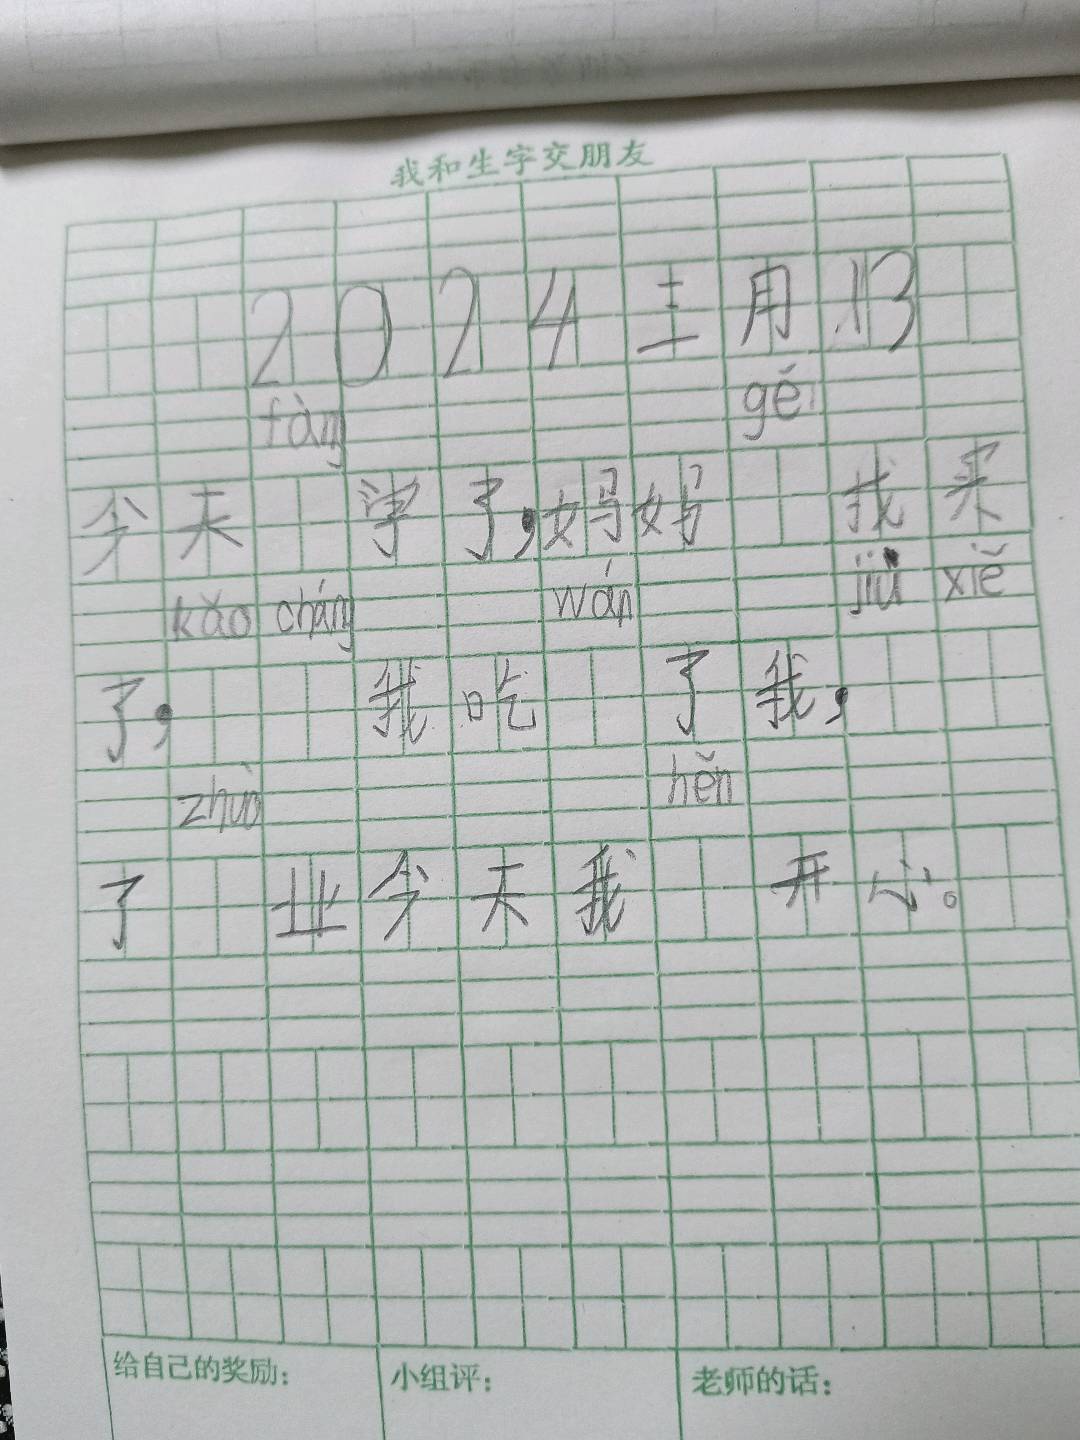 我和生字交朋友
2024 十二月 13
fàng gěi
今天 学了,妈妈 找买
kǎo cháng wán jiù xiě
了, 我吃 了我,
zhuò hěn
了 业今天我 开心。
给自己的奖励: 小组评: 老师的话: